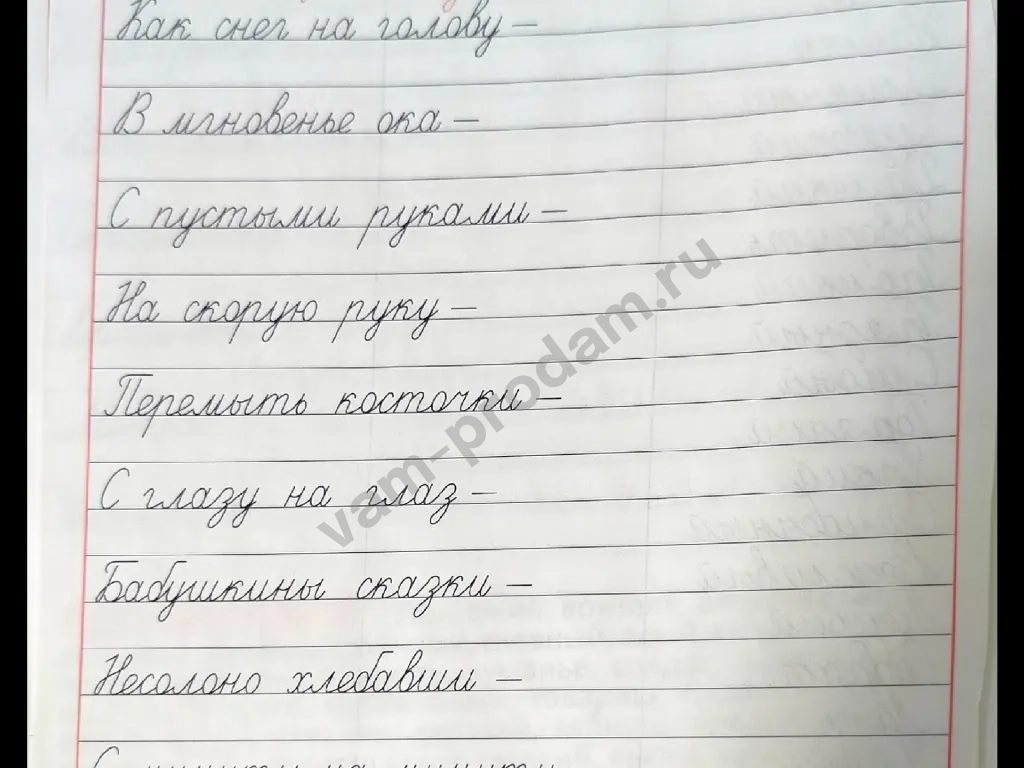 Как снег на голову –
В мгновенье ока –
С пустыми руками –
На скорую руку –
Перемыть косточки –
С глазу на глаз –
Бабушкины сказки –
Несолоно хлебавши –
vam-prodam.ru